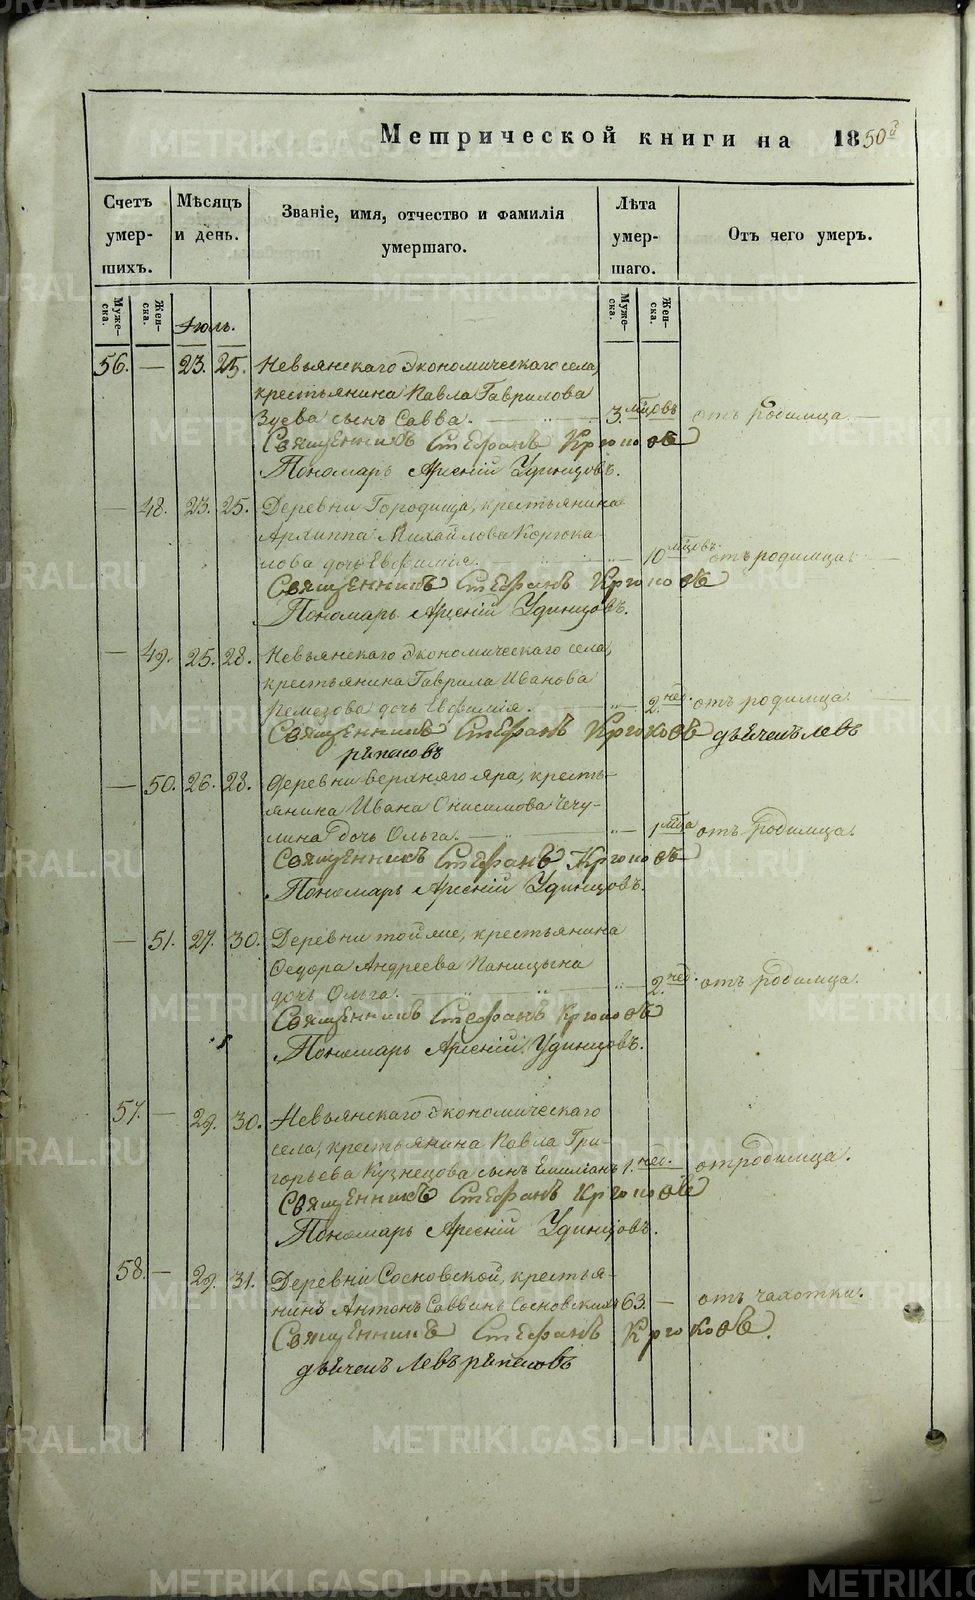 Метрической книги на 1850й
Счетъ умер-шихъ.
Мѣсяцъ и день.
Званіе, имя, отчество и фамилія умершаго.
Лѣта умер-шаго.
Отъ чего умеръ.
Муже-ска.
Жен-ска.
Іюль.
Муже-ска.
Жен-ска.
56. — 23. 25. Невьянскаго Экономическаго села,
крестьянина Павла Гаврилова
Зуева сынъ Савва. 3. мцовъ отъ родимца.
Священникъ Стефанъ Крюковъ
Пономарь Арсеній Удинцовъ.
— 48. 23. 25. Деревни Городища, крестьянина
Архиппа Михайлова Коргока-
лова дочь Евфимія. 10 мцовъ. отъ родимца.
Священникъ Стефанъ Крюковъ
Пономарь Арсеній Удинцовъ.
— 49. 25. 28. Невьянскаго Экономическаго села,
крестьянина Гаврила Иванова
Ремезова дочь Евфимія. 2. нед. отъ родимца.
Священникъ Стефанъ Крюковъ дьячекъ левъ
рѣпасовъ
— 50. 26. 28. Деревни верхняго яра, кресть-
янина Ивана Онисимова Чечу-
лина дочь Ольга. 1 мца отъ родимца.
Священникъ Стефанъ Крюковъ
Пономарь Арсеній Удинцовъ.
— 51. 27. 30. Деревни толмие, крестьянина
Федора Андреева Паницына
дочь Ольга. 2. нед. отъ родимца.
Священникъ Стефанъ Крюковъ
Пономарь Арсеній Удинцовъ.
57. — 29. 30. Невьянскаго Экономическаго
села, крестьянина Павла Гри-
горьева Кузнецова сынъ Емилианъ 1. нед. отъ родимца.
Священникъ Стефанъ Крюковъ
Пономарь Арсеній Удинцовъ.
58. — 29. 31. Деревни Сосновской, крестья-
нинъ Антонъ Саввинъ Сосновскихъ 63. — отъ чахотки.
Священникъ Стефанъ Крюковъ.
дьячекъ Левъ рѣпасовъ
METRIKI.GASO-URAL.RU